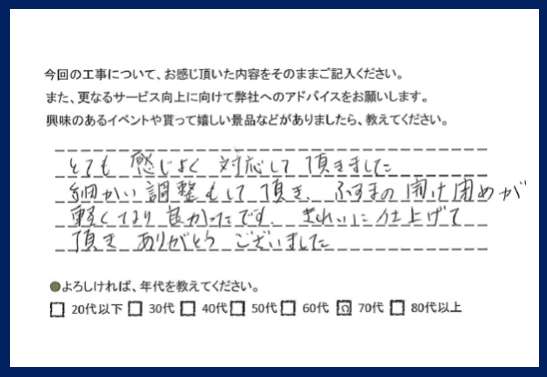 今回の工事について、お感じ頂いた内容をそのままご記入ください。
また、更なるサービス向上に向けて弊社へのアドバイスをお願いします。
興味のあるイベントや貰って嬉しい景品などがありましたら、教えてください。
とても 感じよく 対応して 頂きました
細かい 調整もして 頂き、ふすまの 開け閉めが
軽くなり 良かったです。 きれいに 仕上げて
頂き ありがとう ございました
●よろしければ、年代を教えてください。
20代以下 30代 40代 50代 60代 70代 80代以上